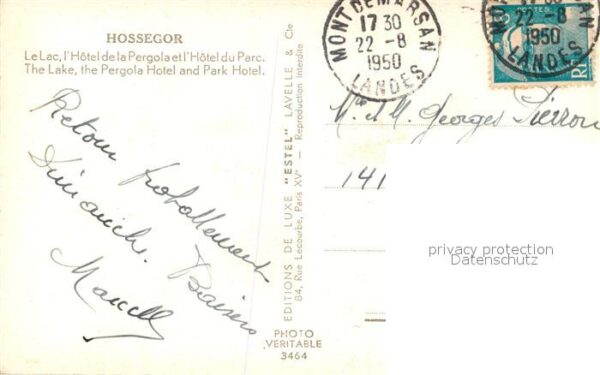 HOSSEGOR
Le Lac, l'Hôtel de la Pergola et l'Hôtel du Parc.
The Lake, the Pergola Hotel and Park Hotel.
Retour probablement
Dimanche. Baisers
Marcelle
EDITIONS DE LUXE "ESTEL" LAVELLE & Cie
84, Rue Lecourbe, Paris XVe — Reproduction interdite
PHOTO
VERITABLE
3464
MONT DE MARSAN
17 30
22 - 8
1950
LANDES
22 - 8
1950
LANDES
POSTES
Mr et M. Georges Pierron
141
privacy protection
Datenschutz